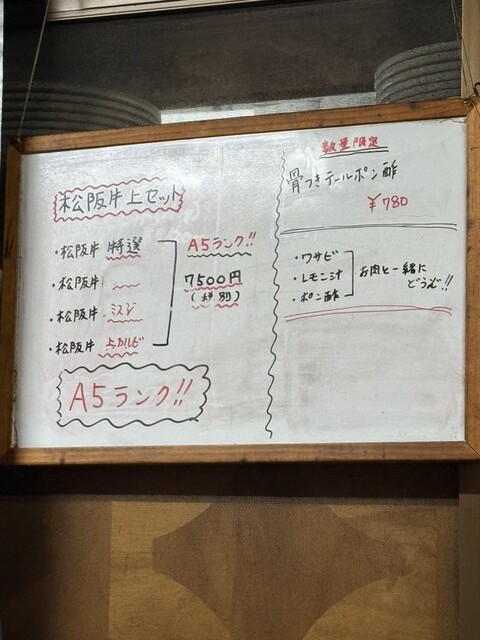 松阪牛上セット
・松阪牛 特選
・松阪牛
・松阪牛 ミスジ
・松阪牛 上カルビ
A5ランク!!
7500円
(税別)
A5ランク!!
数量限定
骨つきテールポン酢
¥780
・ワサビ
・レモン汁
・ポン酢
お肉と一緒に
どうぞ!!